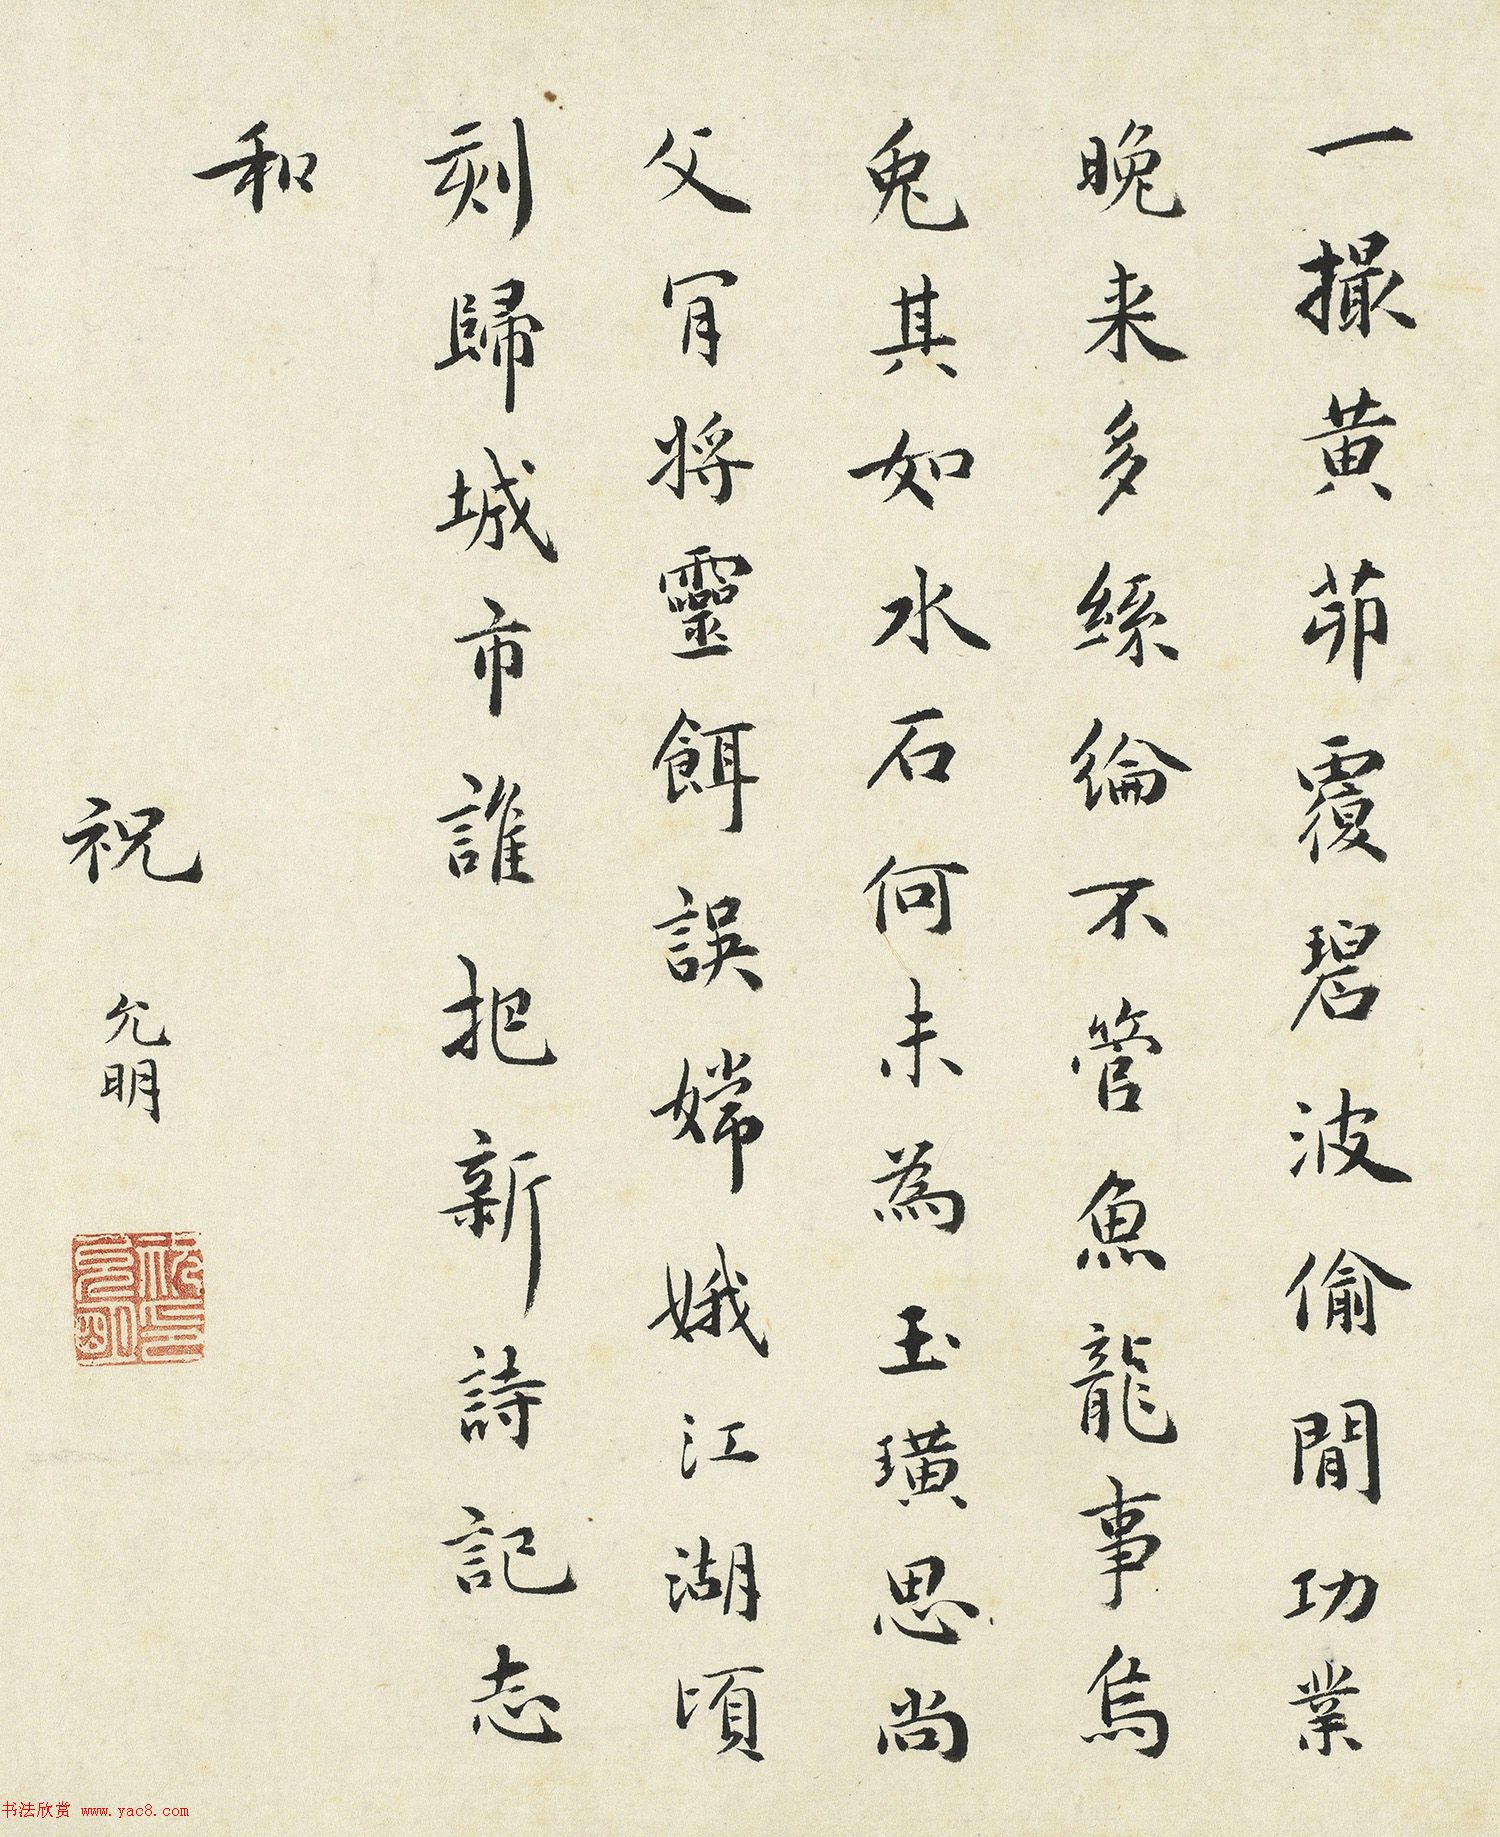 一撮黄茆覆碧波偷閒功業
晚来多絲綸不管魚龍事烏
兔其如水石何未為玉璜思尚
父肎將靈餌誤嫦娥江湖頃
刻歸城市誰把新詩記志
和
祝允明
祝允明印
书法欣赏 www.yac8.com